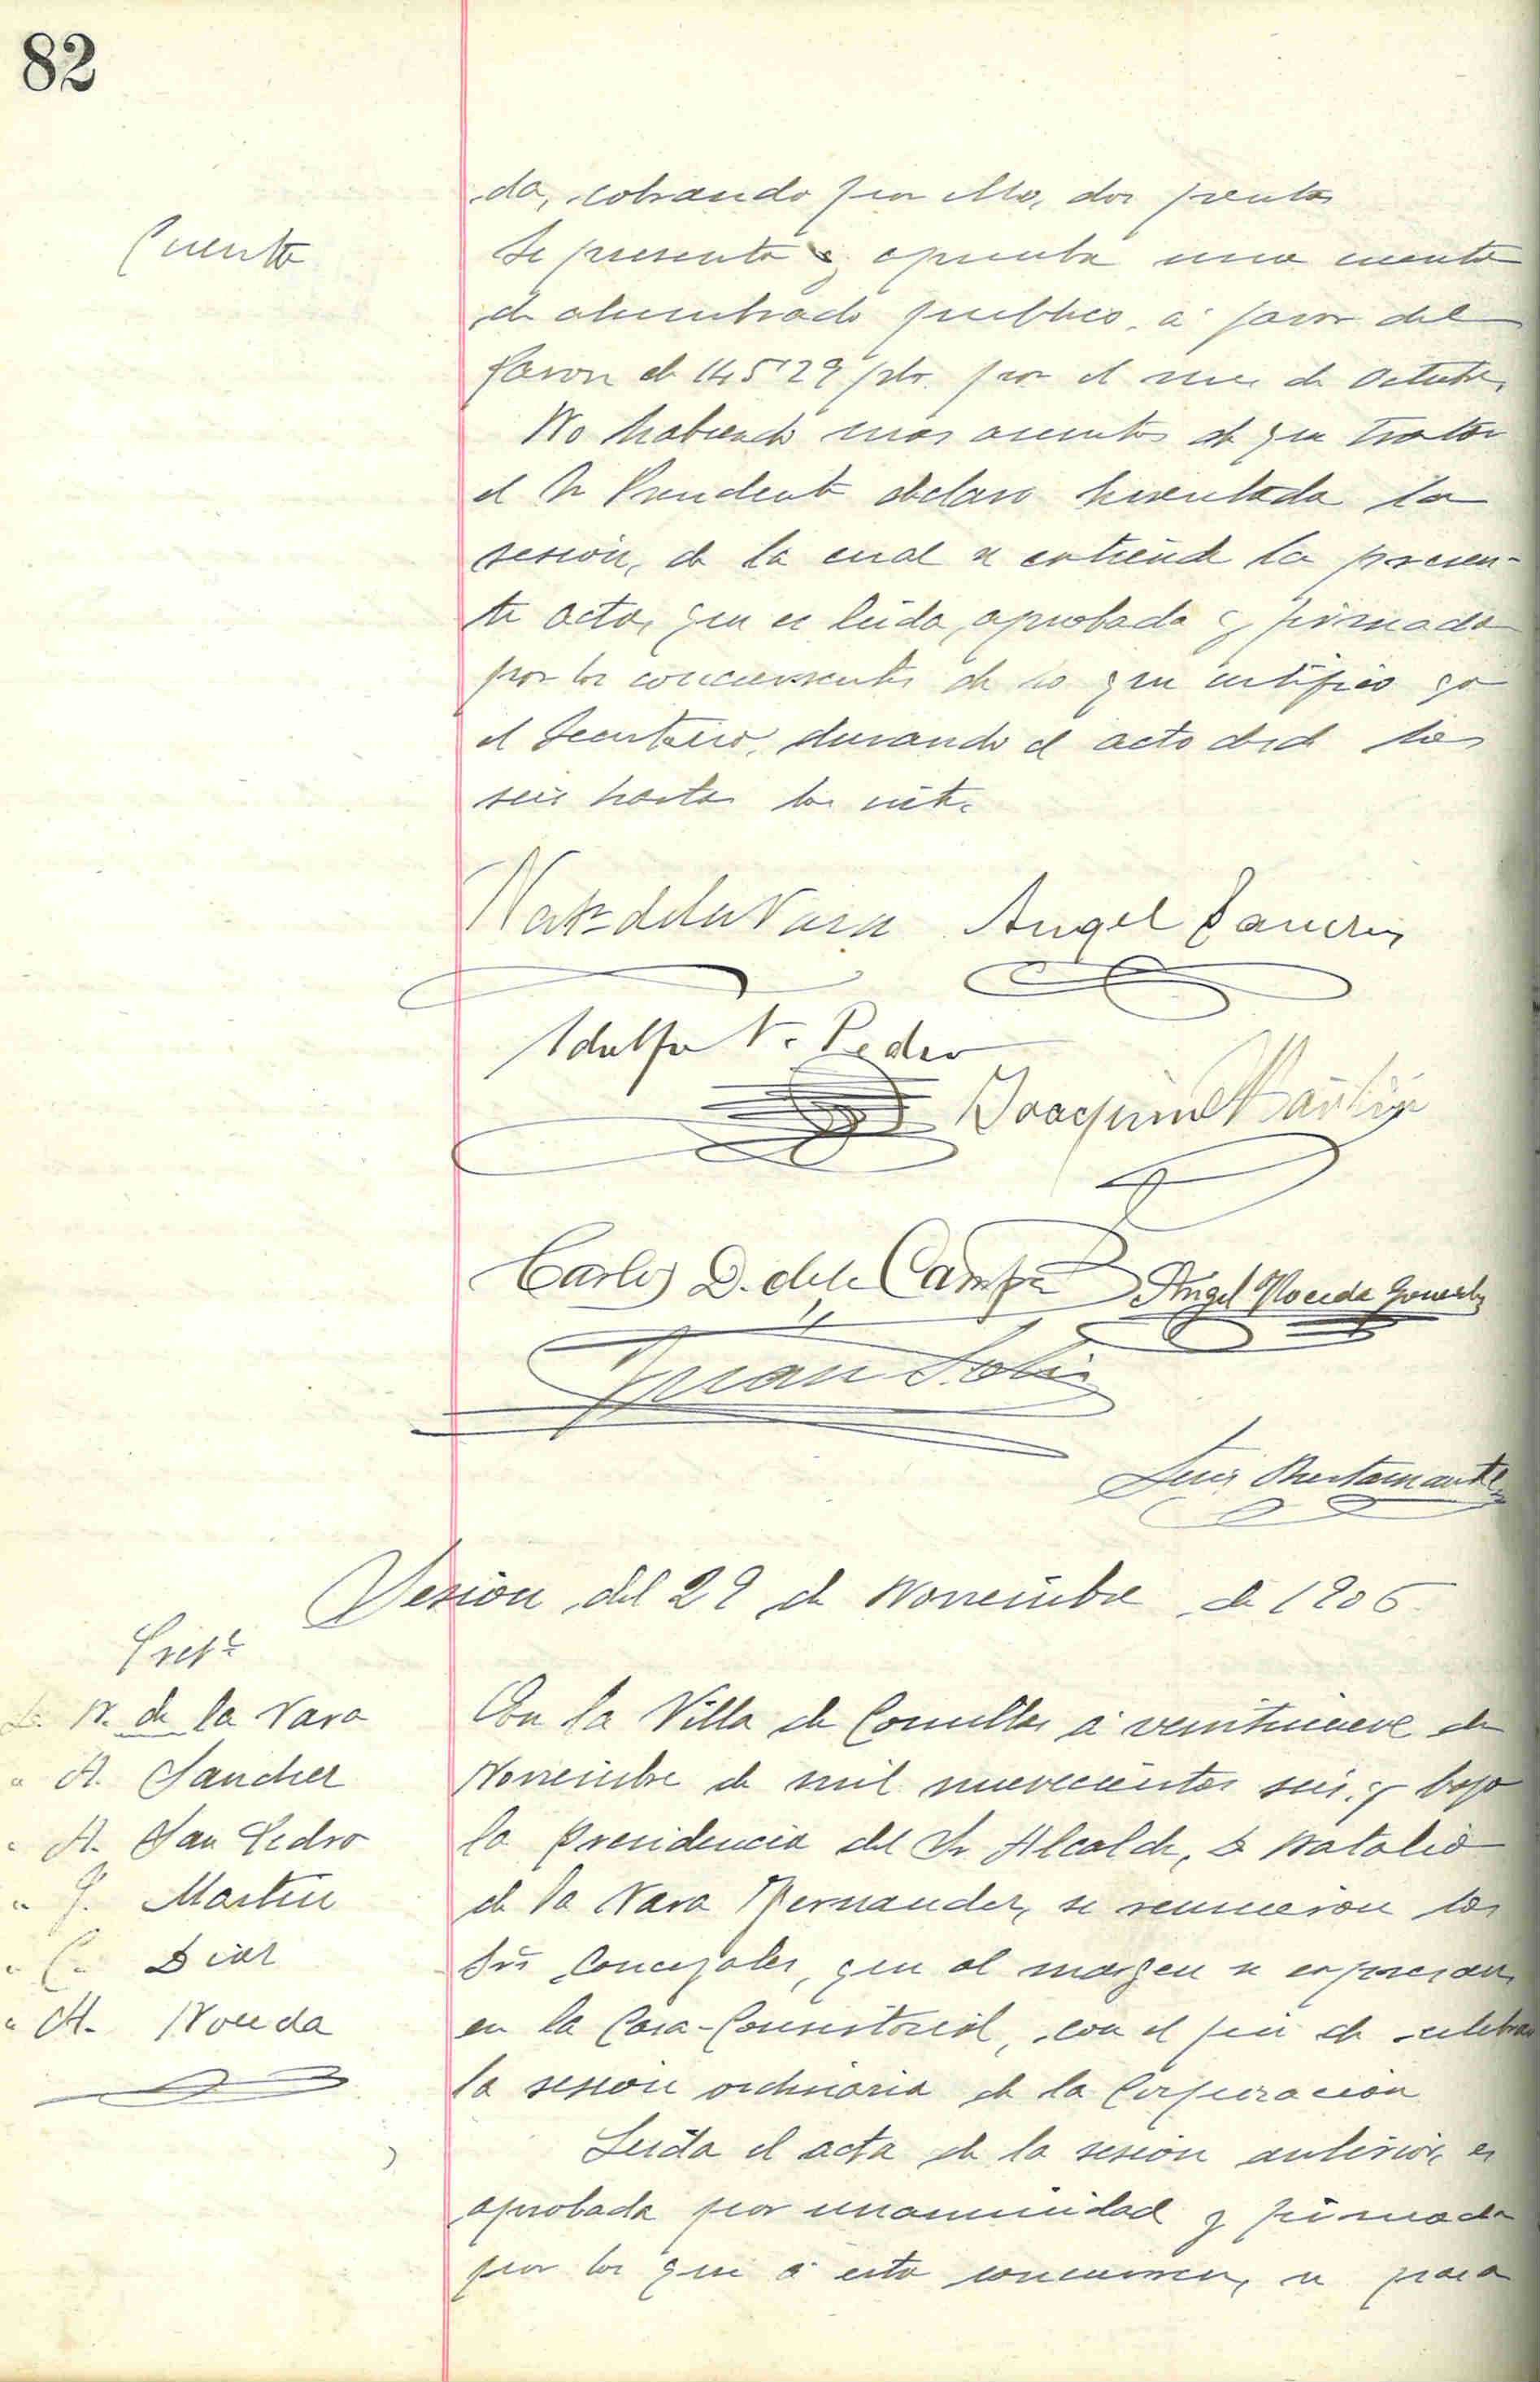 82
da, cobrando por ello, dos pesetas
Cuenta
Se presenta y aprueba una cuenta
de alumbrado publico, a favor del
de 145'29 pts. por el mes de Octubre,
No habiendo mas asuntos de que tratar
el Sr Presidente declaro levantada la
sesión, de la cual se extiende la presen-
te acta, que es leida, aprobada y firmada
por los concurrentes de lo que certifico yo
el Secretario, durando el acto desde las
seis hasta las siete.
Nat. de la Vara Angel Sanchez
Adolfo S. Pedro
Joaquin Martin
Carlos D. de la Campa Angel Noceda Gonzalez
Juan Solis
Luis Bustamante
Sesion del 29 de Noviembre de 1906
Pres.te
D. N. de la Vara
" A. Sanchez
" A. San Pedro
" J. Martin
" C. Diaz
" A. Noceda
En la Villa de Comillas á veintinueve de
Noviembre de mil novecientos seis, y bajo
la Presidencia del Sr. Alcalde, D Natalio
de la Vara Fernandez, se reunieron los
Srs Concejales, que al margen se expresan,
en la Casa-Consistorial, con el fin de celebrar
la sesion ordinaria de la Corporacion
Leida el acta de la sesion anterior, es
aprobada por unanimidad y firmada
por los que á esta concurren, se pasa